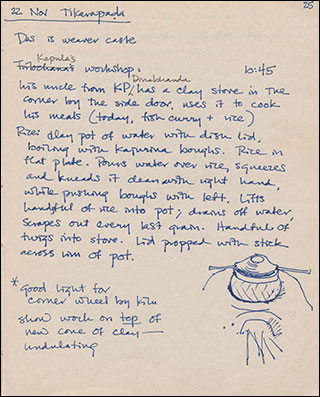 22 Nov Tikarapada 25
Das is weaver caste
Kapula's
Trilochana's workshop: 10:45
Dinabandhu
his uncle from KP, has a clay stove in the
corner by the side door, uses it to cook
his meals (today, fish curry + rice)
Rice: clay pot of water with dish lid,
boiling with kajurina boughs. Rice in
flat plate. Pours water over rice, squeezes
and kneads it clean with right hand,
while pushing boughs with left. Lifts
handsful of rice into pot; drains off water,
scrapes out every last grain. Handful of
twigs into stove. Lid propped with stick
across rim of pot.
* Good light for
corner wheel by kiln
show work on top of
new cone of clay —
undulating